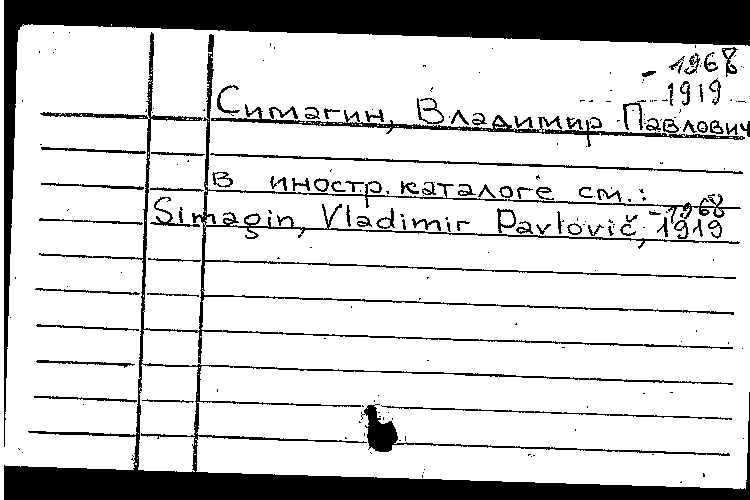 - 1968
1919
Симагин, Владимир Павлович
в иностр. каталоге см.:
- 1968
Simagin, Vladimir Pavlovič, 1919